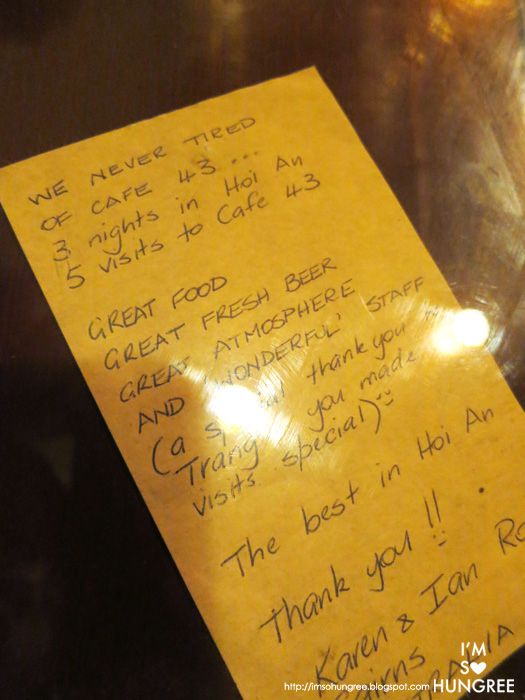 WE NEVER TIRED
OF CAFE 43...
3 nights in Hoi An
5 visits to Cafe 43
GREAT FOOD
GREAT FRESH BEER
GREAT ATMOSPHERE
AND 'WONDERFUL' STAFF
(a special thank you
Trang you made
visits special)
The best in Hoi An
Thank you!!
Karen & Ian
I'M
SO
HUNGREE
http://imsohungree.blogspot.com